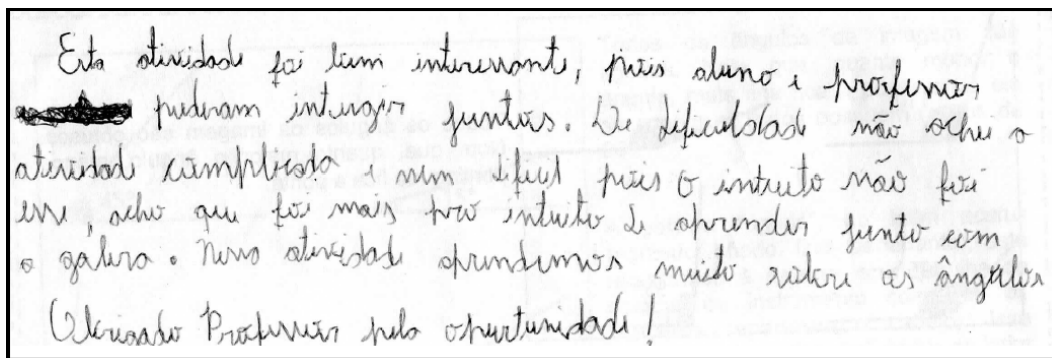 Esta atividade foi bem interessante, pois aluno e professor
puderam interagir juntos. De dificuldade não achei a
atividade complicada e nem difícil pois o intuito não foi
esse, acho que foi mais pro intuito de aprender junto com
a galera. Nessa atividade aprendemos muito sobre os ângulos
Obrigado Professor pela oportunidade!